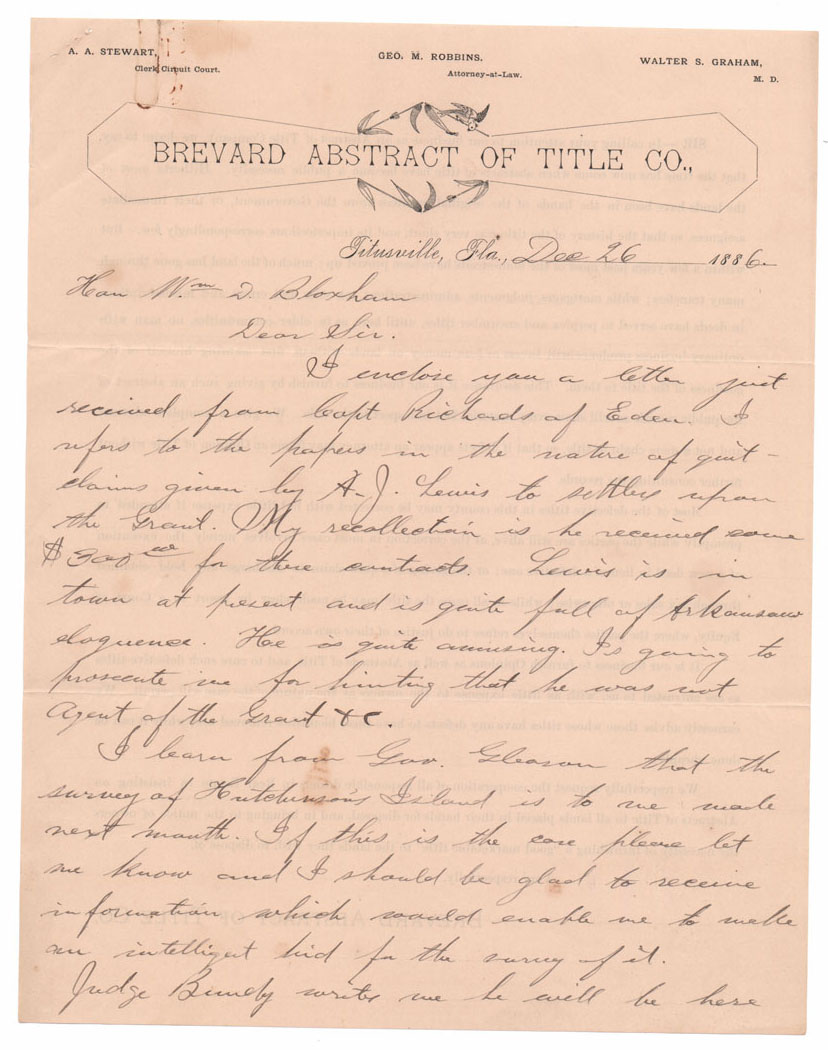 A. A. STEWART,
Clerk Circuit Court.
GEO. M. ROBBINS.
Attorney-at-Law.
WALTER S. GRAHAM,
M. D.
BREVARD ABSTRACT OF TITLE CO.,
Titusville, Fla., Dec 26 1886
Hon Wm D. Bloxham
Dear Sir.
I enclose you a letter just
received from Capt Richards of Eden. I
refers to the papers in the nature of quit-
claims given by A. J. Lewis to settlers upon
the Grant. My recollection is he received some
$300 00 for these contracts. Lewis is in
town at present and is quite full of Arkansaw
eloquence. He is quite amusing. Is going to
prosecute me for hinting that he was not
Agent of the Grant &C.
I learn from Gov. Gleason that the
survey of Hutchinsons Island is to me made
next month. If this is the case please let
me know and I should be glad to receive
information which would enable me to make
an intelligent bid for the survey of it.
Judge Bundy writes me he will be here